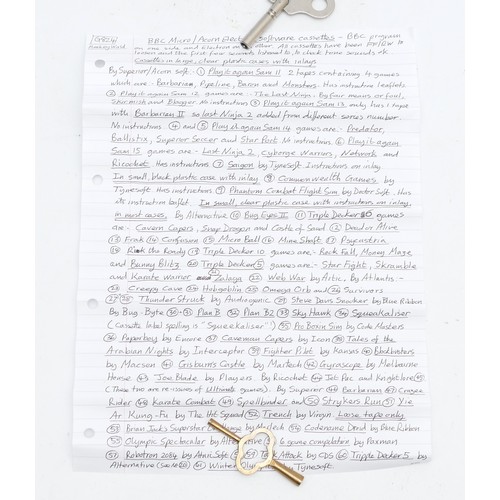 BBC Micro / Acorn Electron software cassettes - BBC program
on one side and Electron on other. As cassettes have been
listed and the first four screens
Cassettes in large, clear plastic cases with inlays
By Superior/Acorn soft - ① Play it again Sam 11 2 tapes containing 4 games
which are - Barbarian, Pipeline, Baron and Monsters. Has instruction leaflets
② Play it again Sam 12 games are - The Last Ninja, By fair means or foul,
Skirmish and Blagger No instructions ③ Play it again Sam 13 only has 1 tape
with Barbarian II so Last Ninja 2 added from different series number.
No instructions ④ and ⑤ Play it again Sam 14 games are - Predator,
Ballistix, Superior Soccer and Star Port No instructions ⑥ Play it again
Sam 15 games are - Last Ninja 2, Cyborg Warriors, Network and
Ricochet Has instructions ⑦ Saigon by Tynesoft Instructions on inlay
In small, black plastic case with inlay. ⑧ Commonwealth Games by
Tynesoft Has instructions ⑨ Phantom Combat Flight Sim by Doctor Soft. Has
its instruction booklet. In small, clear plastic case with instructions on inlay,
in most cases. By Alternative ⑩ Bug Eyes II ⑪ Triple Decker 6 games
are - Cavern Capers, Snap Dragon and Castle of Sand ⑫ Dead or Alive
⑬ Frak ⑭ Confusion ⑮ Micro Ball ⑯ Mine Shaft ⑰ Psycastria
⑱ Rik the Roady ⑲ Triple Decker 10 games are - Rock Fall, Money Maze
and Bunny Blitz ⑳ Triple Decker 5 games are - Star Fight, Skramble
and Karate Warrior and Zalaga ㉒ Web War by Artic. By Atlantis -
㉓ Creepy Cave ㉔ Hobgoblin ㉕ Omega Orb and ㉖ Survivors
㉗ ㉘ Thunder Struck by Audiogenic ㉙ Steve Davis Snooker by Blue Ribbon
By Bug-Byte ㉚ ㉛ Plan B ㉜ Plan B2 ㉝ Sky Hawk ㉞ Squeakaliser
(Cassette label spelling is "Squeekaliser") ㉟ Pro Boxing Sim by Code Masters
㊱ Paperboy by Encore ㊲ Caveman Capers by Icon ㊳ Tales of the
Arabian Nights by Interceptor ㊴ Fighter Pilot by Kansas ㊵ Blockbusters
by Macsen ㊶ Gisburne's Castle by Martech ㊷ Gyroscope by Melbourne
House ㊸ Joe Blade by Players. By Ricochet ㊹ Jet Pac and Knightlore ㊺
(These two are re-issues of Ultimate games). By Superior ㊻ Barbarian ㊼ Crazee
Rider ㊽ Karate Combat ㊾ Spellbinder and ㊿ Strykers Run 51 Yie
Ar Kung-Fu by The Hit Squad 52 Trench by Virgin. Loose tape only
53 Brian Jacks Superstar Challenge by Martech 54 Codename Droid by Blue Ribbon
55 Olympic Spectacular by Alternative 56 6 game compilation by Paxman
57 Robotron 2084 by Atari Soft 59 Tank Attack by CDS 60 Tripple Decker 5 by
Alternative 61 Winter Olympics by Tynesoft.